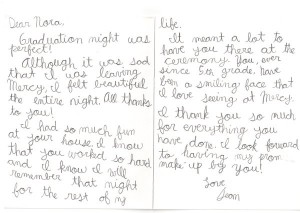 Dear Nora,
Graduation night was
perfect!
Although it was sad
that I was leaving
Mercy, I felt beautiful
the entire night. All thanks
to you!
I had so much fun
at your house. I know
that you worked so hard
and I know I will
remember that night
for the rest of my
life.
It meant a lot to
have you there at the
ceremony. You, ever
since 5th grade, have
been a smiling face that
I love seeing at Mercy.
I thank you so much
for everything you
have done. I look forward
to having my prom
make-up by you!
Love